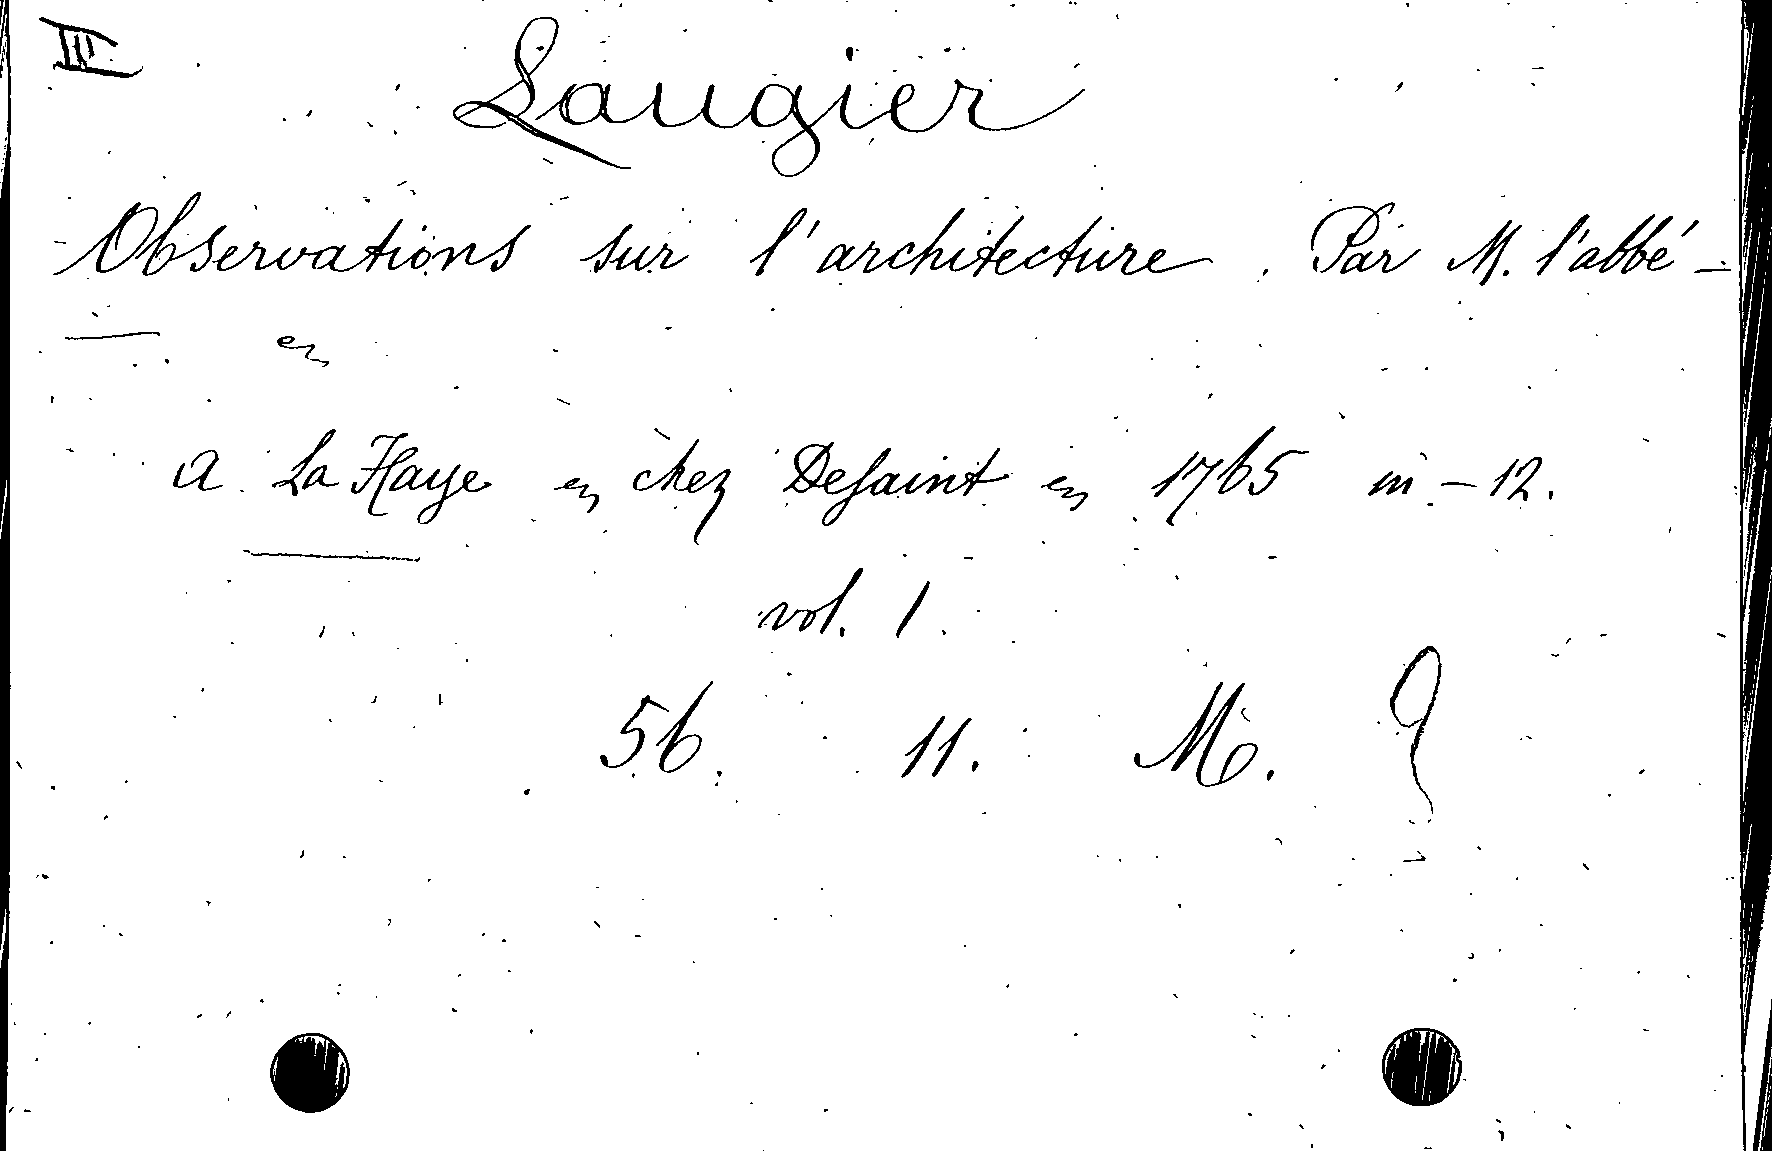 III
Laugier
Observations sur l'architecture. Par M. l'abbé —
—. en
A La Haye en chez Desaint en 1765 in-12.
vol. 1.
56. 11. M.